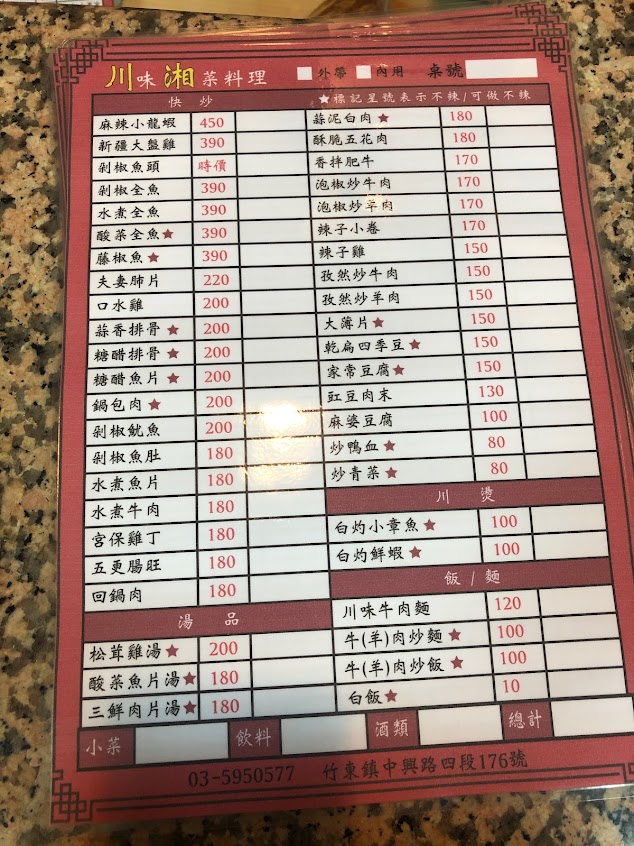 川味湘菜料理 外帶 內用 桌號
快炒
麻辣小龍蝦 450
新疆大盤雞 390
剁椒魚頭 時價
剁椒全魚 390
水煮全魚 390
酸菜全魚★ 390
藤椒魚★ 390
夫妻肺片 220
口水雞 200
蒜香排骨★ 200
糖醋排骨★ 200
糖醋魚片★ 200
鍋包肉★ 200
剁椒魷魚 200
剁椒魚肚 180
水煮魚片 180
水煮牛肉 180
宮保雞丁 180
五更腸旺 180
回鍋肉 180
湯品
松茸雞湯★ 200
酸菜魚片湯★ 180
三鮮肉片湯★ 180
★標記星號表示不辣/可做不辣
蒜泥白肉★ 180
酥脆五花肉 180
香拌肥牛 170
泡椒炒牛肉 170
泡椒炒羊肉 170
辣子小卷 170
辣子雞 150
孜然炒牛肉 150
孜然炒羊肉 150
大薄片★ 150
乾扁四季豆★ 150
家常豆腐★ 150
豇豆肉末 130
麻婆豆腐 100
炒鴨血★ 80
炒青菜★ 80
川燙
白灼小章魚★ 100
白灼鮮蝦★ 100
飯/麵
川味牛肉麵 120
牛(羊)肉炒麵★ 100
牛(羊)肉炒飯★ 100
白飯★ 10
小菜 飲料 酒類 總計
03-5950577 竹東鎮中興路四段176號